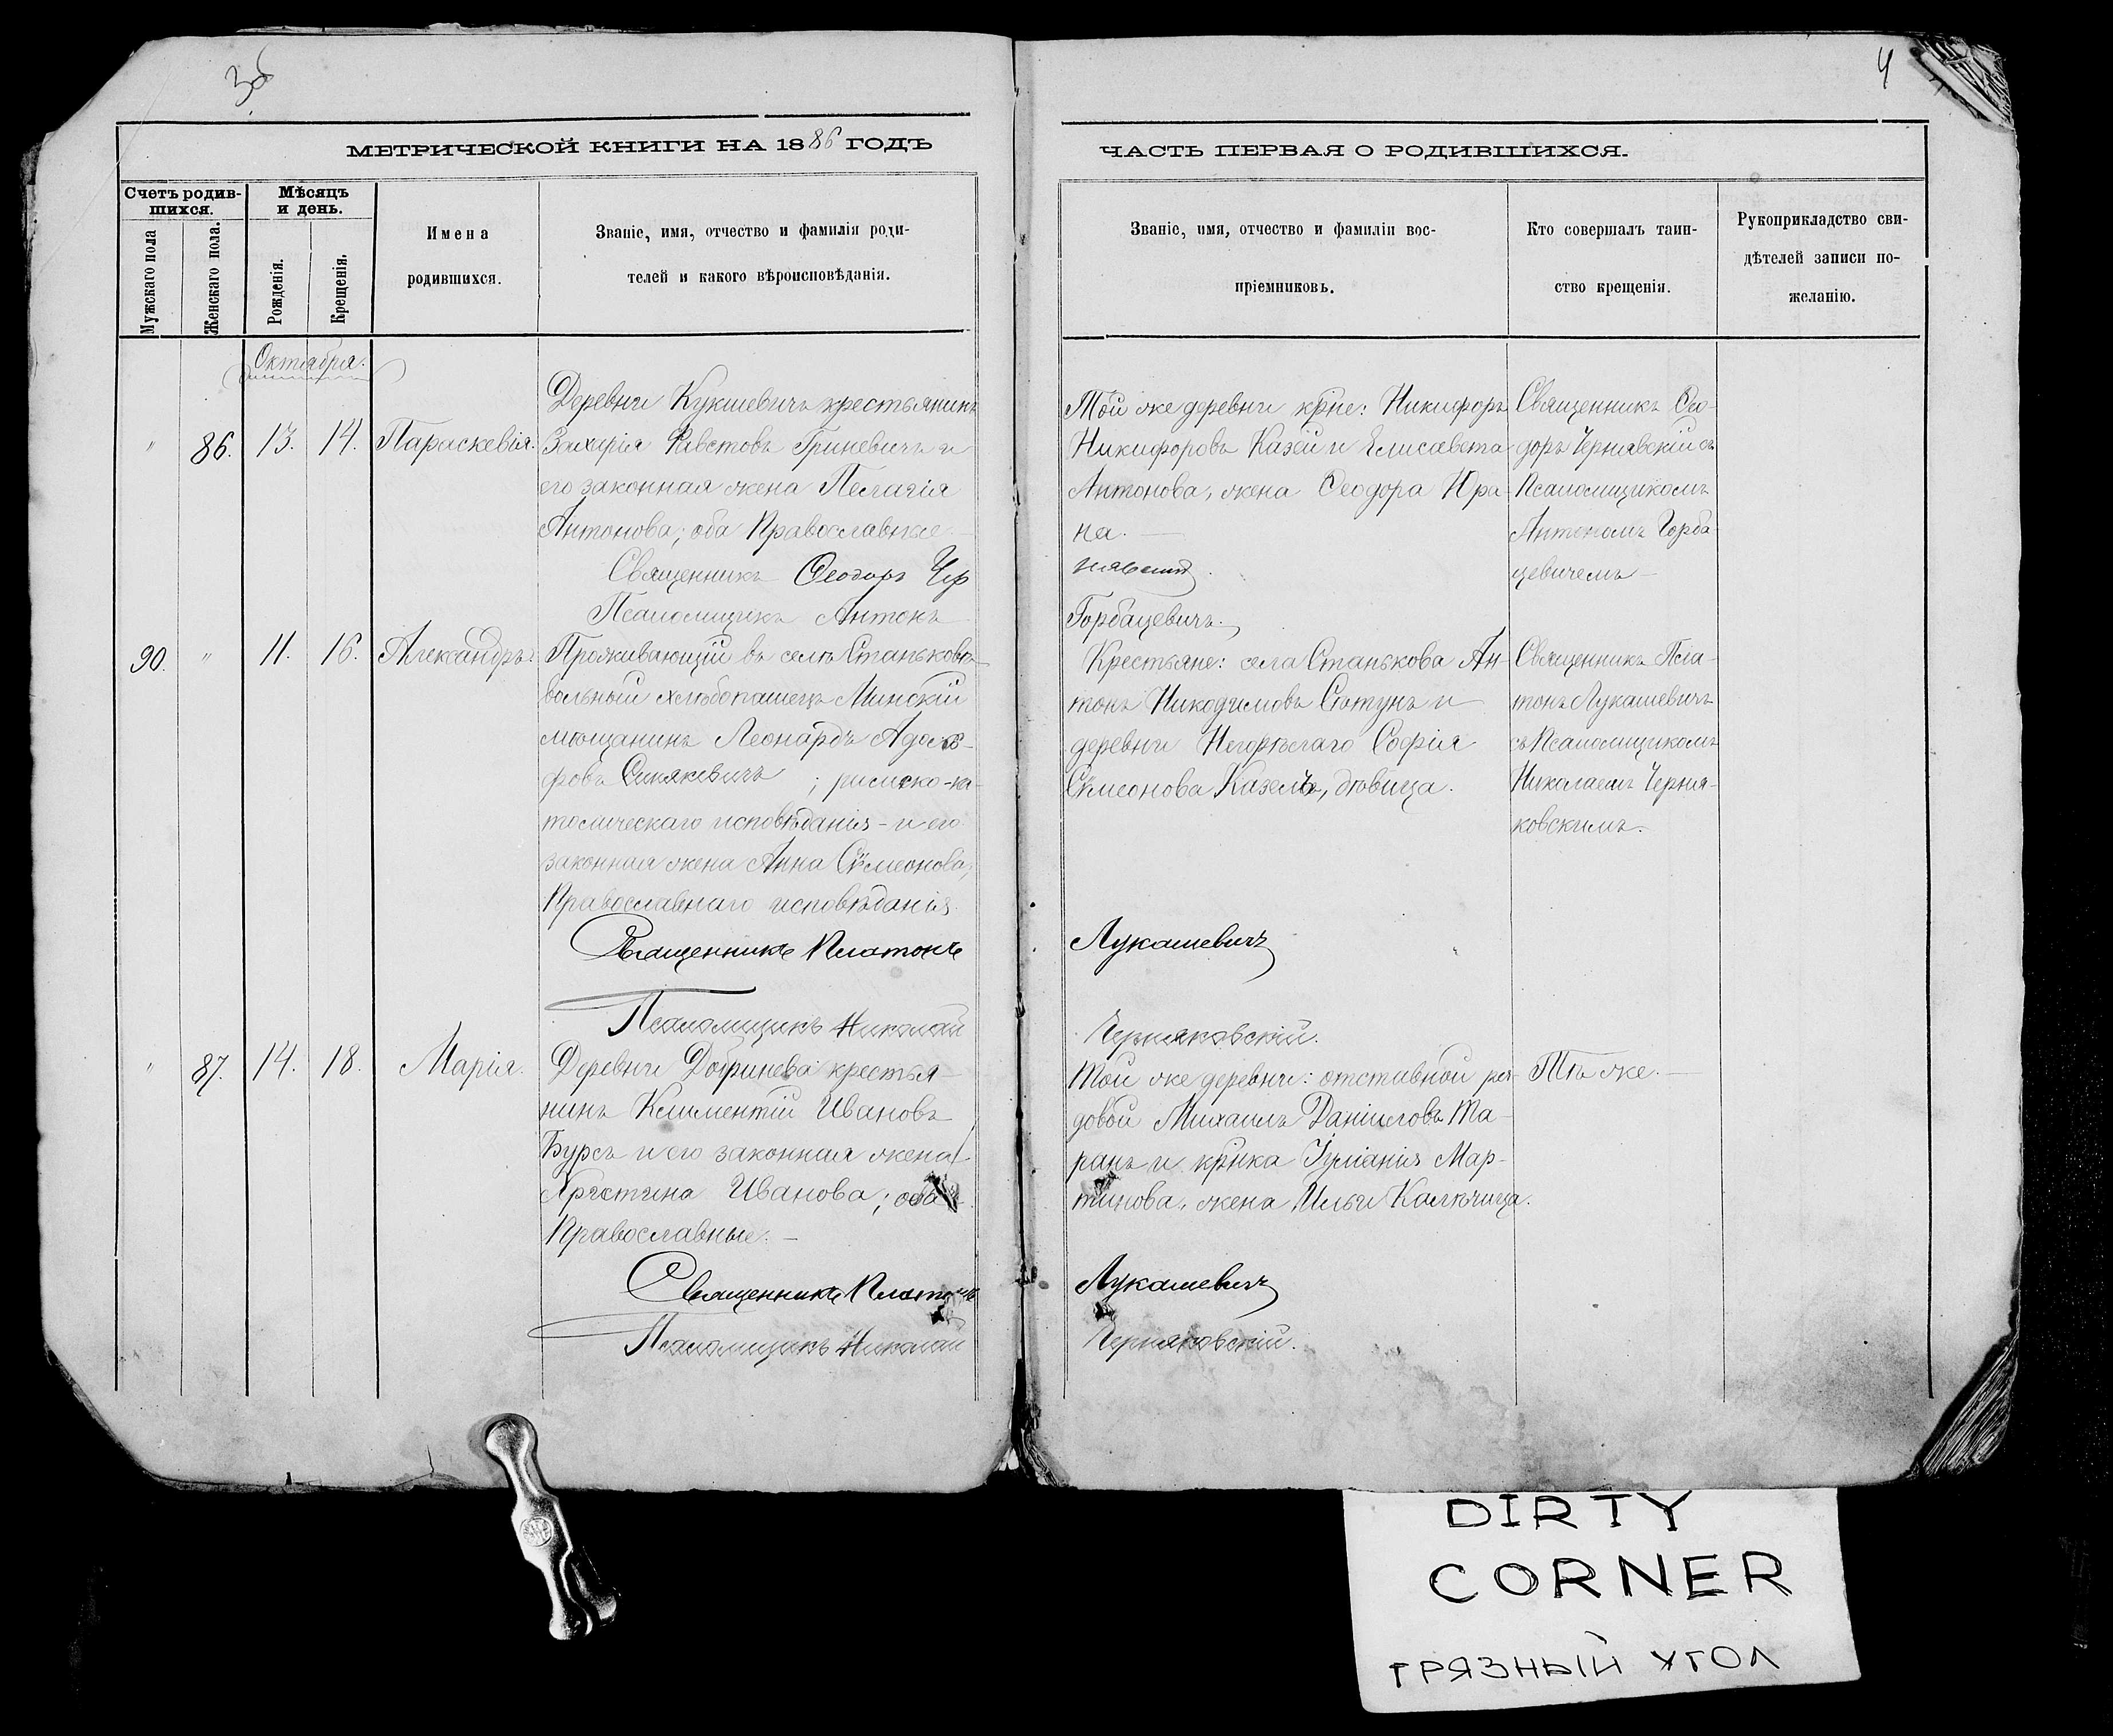 3об
4
МЕТРИЧЕСКОЙ КНИГИ НА 1886 ГОДЪ
ЧАСТЬ ПЕРВАЯ О РОДИВШИХСЯ.
Счетъ родив-
шихся.
Мѣсяцъ
и день.
Мужскаго пола
Женскаго пола.
Рожденія.
Крещенія.
Имена
родившихся.
Званіе, имя, отчество и фамилія роди-
телей и какого вѣроисповѣданія.
Званіе, имя, отчество и фамиліи вос-
пріемниковъ.
Кто совершалъ таин-
ство крещенія.
Рукоприкладство сви-
дѣтелей записи по-
желанію.
Октября.
" 86. 13. 14. Параскевія.
Деревни Кукшевичъ крестьянинъ
Захарія Гриневичъ и
его законная жена Пелагія
Антонова; оба Православные
Священникъ Ѳеодоръ Чер
Псаломщикъ Антонъ
Той же деревни кр̃не: Никифоръ
Никифоровъ Казей и Елисавета
Антонова, жена Ѳеодора Юра-
на. —
нявскій.
Горбацевичъ.
Священникъ Ѳео-
доръ Чернявскій съ
Псаломщикомъ
Антономъ Горба-
цевичемъ —
90. " 11. 16. Александръ.
Проживающій въ селѣ Станьковѣ
вольный хлѣбопашецъ Минскій
мѣщанинъ Леонардъ Адоль-
фовъ Синякевичъ ; римско-ка-
толическаго исповѣданія - и его
законная жена Анна Сѵмеонова,
Православнаго исповѣданія.
Священникъ Платонъ
Псаломщикъ Николай
Крестьяне: села Станькова Ан-
тонъ Никодимовъ и
деревни Негорѣлаго Софія
Сѵмеонова Казелъ, дѣвица.
Лукашевичъ
Черняковскій.
Священникъ Пла-
тонъ Лукашевичъ
съ Псаломщикомъ
Николаемъ Черня-
ковскимъ.
" 87. 14. 18. Марія.
Деревни Добринева крестья-
нинъ Климентій Ивановъ
Бурсъ и его законная жена
Христина Иванова; оба
Православные. —
Священникъ Платонъ
Псаломщикъ Николай
Той же деревни: отставной ря-
довой Михаилъ Даніиловъ Та-
ранъ и кр̃нка Іуліанія Мар-
тинова, жена Ильи Калючица.
Лукашевичъ
Черняковскій.
Тѣ же. —
DIRTY
CORNER
ГРЯЗНЫЙ УГОЛ